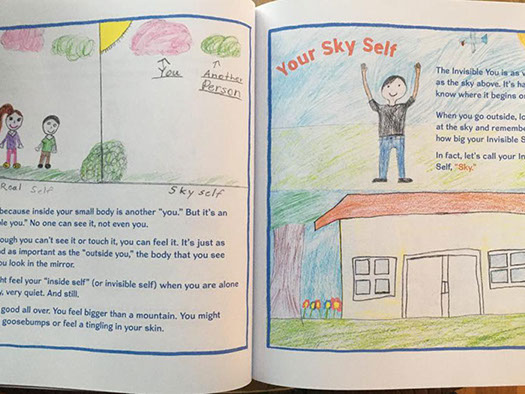 You
Another
Person
Real Self
Sky self
because inside your small body is another “you.” But it’s an
ble you.” No one can see it, not even you.
ough you can’t see it or touch it, you can feel it. It’s just as
as important as the “outside you,” the body that you see
ou look in the mirror.
ht feel your “inside self” (or invisible self) when you are alone
y, very quiet. And still.
good all over. You feel bigger than a mountain. You might
goosebumps or feel a tingling in your skin.
Your Sky Self
The Invisible You is as v
as the sky above. It’s ha
know where it begins o
When you go outside, lo
at the sky and remembe
how big your Invisible S
In fact, let’s call your In
Self, “Sky.”